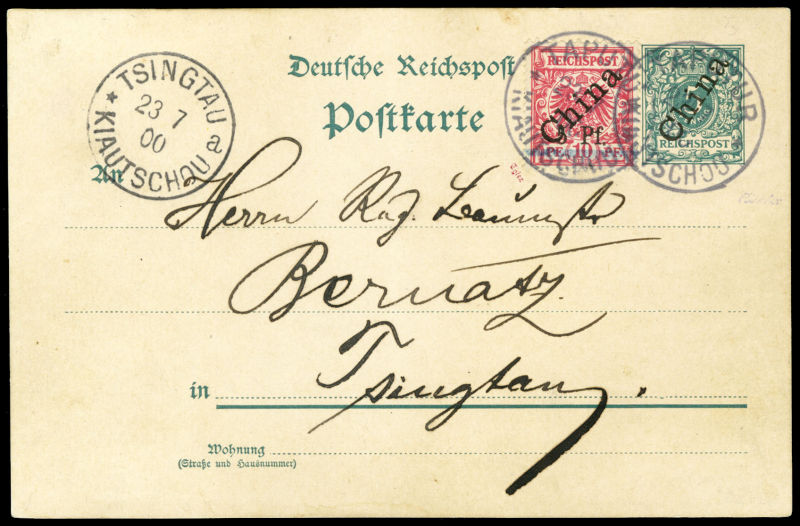 Deutsche Reichspost
Postkarte
TSINGTAU
23 7
00
a
* KIAUTSCHOU
REICHSPOST
China
Pf.
10
China
REICHSPOST
TAPUTUR
An
Herrn Reg. Baumstr
Bernatz
in Tsingtau.
Wohnung
(Straße und Hausnummer)